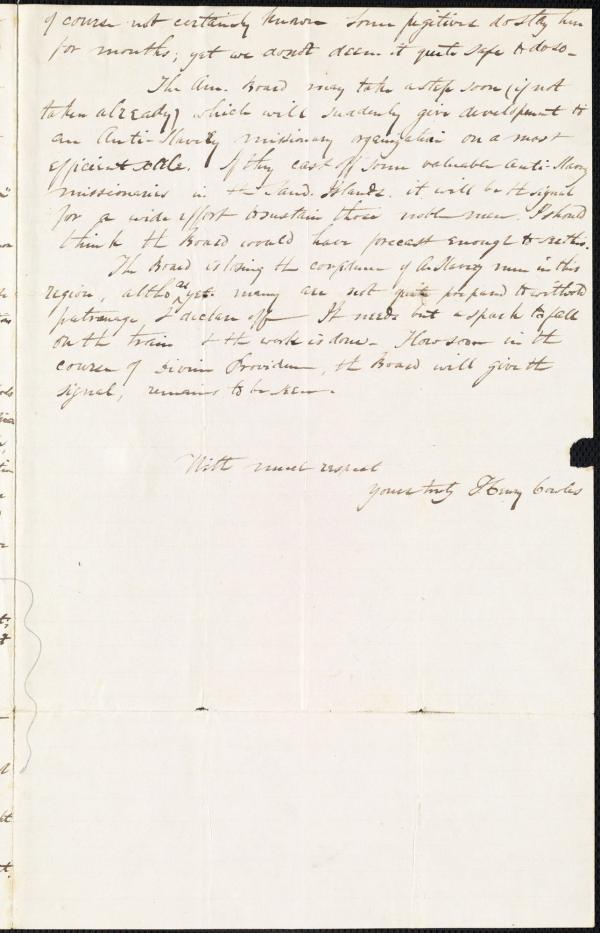 of course not certainly known some fugitives do stay here
for months; yet we do not deem it quite safe to do so—
The Am. Board may take a step soon (if not
taken already) which will suddenly give development to
an Anti-Slavery missionary organization on a most
efficient scale. If they cast off some valuable Anti-Slavery
missionaries in the Sand. Islands, it will be the signal
for a wide effort to sustain those noble men. I should
think the Board would have forecast enough to see this.
The Board is losing the confidence of A. Slavery men in this
region, altho as yet many are not quite prepared to withhold
patronage & declare off. It needs but a spark to fall
on the train & the work is done— How soon in the
course of divine Providence, the Board will give the
signal, remains to be seen.
With much respect
yours truly Henry Cowles